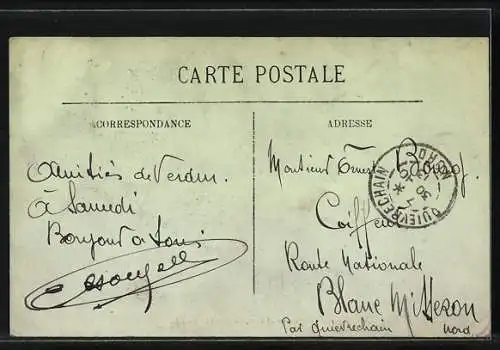 CARTE POSTALE
CORRESPONDANCE
ADRESSE
Amitiés de Verdun.
à Samedi
Bonjour a tous
Monsieur Ernest
Coiffeur
Route Nationale
Blanc Misseron
Par Quievrechain Nord
QUIEVRECHAIN NORD